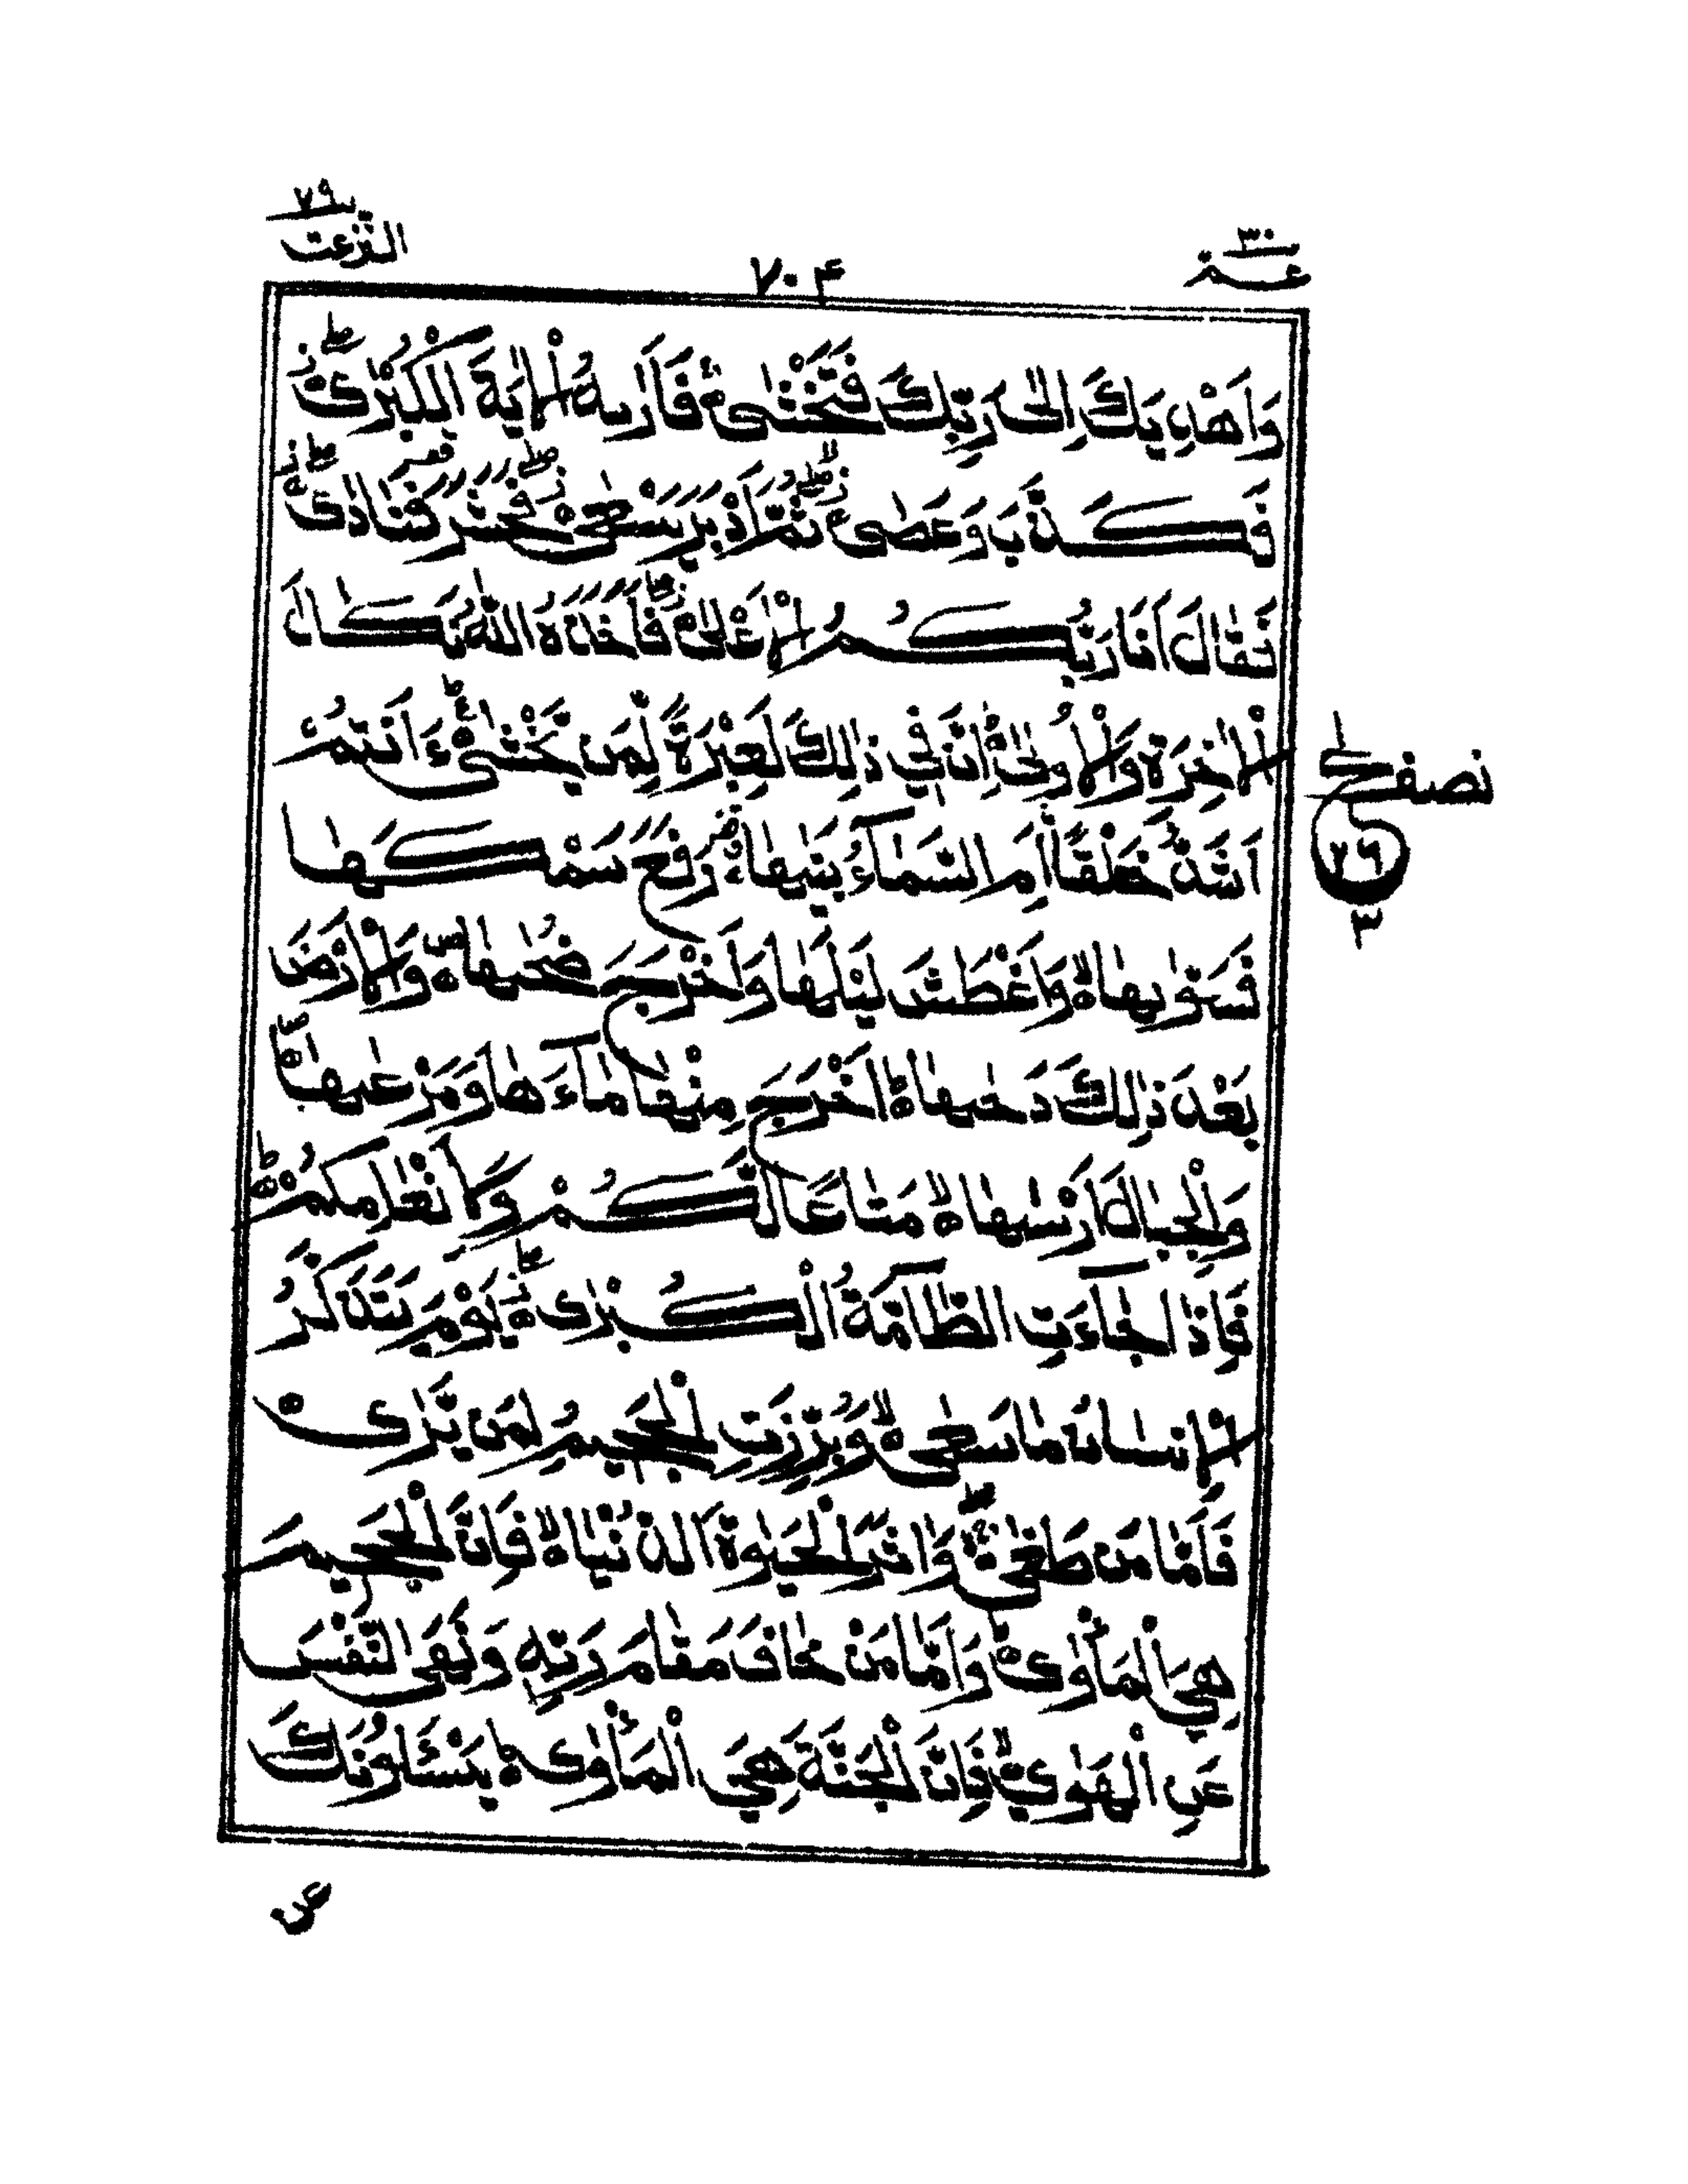 عمّ ٣٠
٧٠۴
النّٰزعٰت ٧٩
وَاَهْدِيَكَ اِلٰى رَبِّكَ فَتَخْشٰى ۚ فَاَرٰىهُ الْاٰيَةَ الْكُبْرٰى
فَكَذَّبَ وَعَصٰى ثُمَّ اَدْبَرَ يَسْعٰى فَحَشَرَ فَنَادٰى
فَقَالَ اَنَا رَبُّكُمُ الْاَعْلٰى فَاَخَذَهُ اللّٰهُ نَكَالَ
الْاٰخِرَةِ وَالْاُوْلٰى اِنَّ فِيْ ذٰلِكَ لَعِبْرَةً لِّمَنْ يَّخْشٰى ءَاَنْتُمْ
اَشَدُّ خَلْقًا اَمِ السَّمَآءُ بَنٰىهَا رَفَعَ سَمْكَهَا
فَسَوّٰىهَا وَاَغْطَشَ لَيْلَهَا وَاَخْرَجَ ضُحٰىهَا وَالْاَرْضَ
بَعْدَ ذٰلِكَ دَحٰىهَا اَخْرَجَ مِنْهَا مَآءَهَا وَمَرْعٰىهَا
وَالْجِبَالَ اَرْسٰىهَا مَتَاعًا لَّكُمْ وَلِاَنْعَامِكُمْ
فَاِذَا جَآءَتِ الطَّآمَّةُ الْكُبْرٰى يَوْمَ يَتَذَكَّرُ
الْاِنْسَانُ مَا سَعٰى وَبُرِّزَتِ الْجَحِيْمُ لِمَنْ يَّرٰى
فَاَمَّا مَنْ طَغٰى وَاٰثَرَ الْحَيٰوةَ الدُّنْيَا فَاِنَّ الْجَحِيْمَ
هِيَ الْمَاْوٰى وَاَمَّا مَنْ خَافَ مَقَامَ رَبِّهٖ وَنَهَى النَّفْسَ
عَنِ الْهَوٰى فَاِنَّ الْجَنَّةَ هِيَ الْمَاْوٰى يَسْـَٔلُوْنَكَ
نصف
٢٦
٣
عن